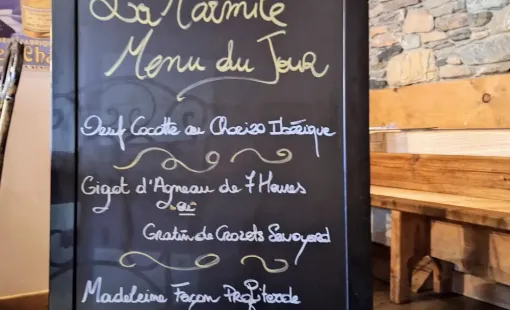 La Marmite
Menu du Jour
Oeuf Cocotte au Chorizo Ibérique
Gigot d'Agneau de 7 Heures
ou
Gratin de Crozets Savoyard
Madeleine Façon Profiterole